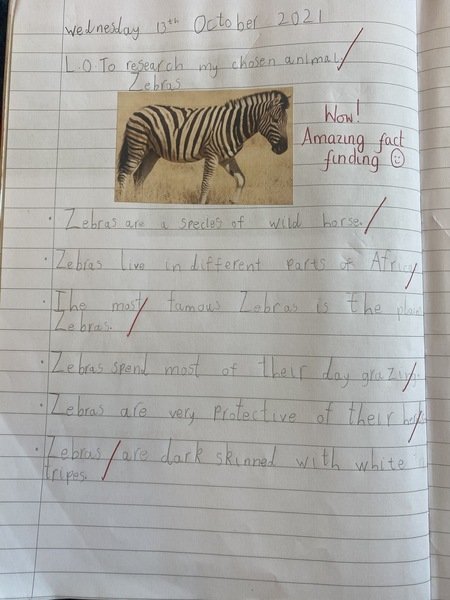 Wednesday 13th October 2021
L.O To research my chosen animal.
Zebras
Wow!
Amazing fact
finding
Zebras are a species of wild horse.
Zebras live in different parts of Africa
The most famous Zebras is the plains
Zebras.
Zebras spend most of their day grazing.
Zebras are very protective of their
Zebras are dark skinned with white
tripes.